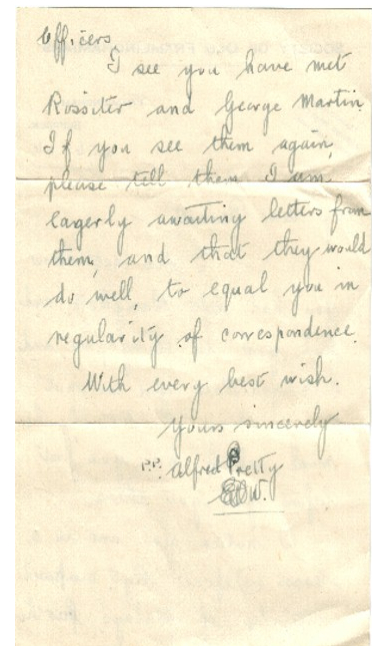 Officers
I see you have met
Rossiter and George Martin.
If you see them again,
please tell them I am
eagerly awaiting letters from
them, and that they would
do well, to equal you in
regularity of correspondence.
With every best wish.
Yours sincerely
pp. Alfred Pretty
W.